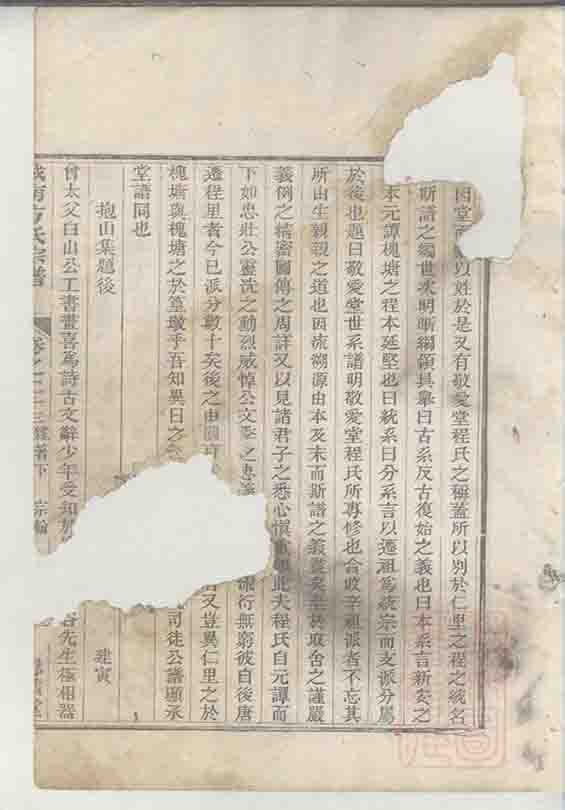 因堂以姓於是又有敬愛堂程氏之稱蓋所以別於仁里之程之統名
斯譜之編世次明晰綱領具舉曰古系反古復始之義也曰本系言新安之
本元譚槐塘之程本延堅也曰統系曰分系言以遷祖爲統宗而支派分屬
於後也題曰敬愛堂世系譜明敬愛堂程氏所專修也合收辛祖派者不忘其
所由生親親之道也因流溯源由本及末而斯譜之義盡矣至於取舍之謹嚴
義例之精密圖傳之周詳又以見諸君子之悉心慎如此夫程氏自元譚而
下如忠壯公靈洗之勳烈威悼公文季之忠衍無窮彼自後唐
遷程里者今已派分數十矣後之申圖又豈異仁里之於
槐塘與槐塘之於篁墩乎吾知異日之司徒公譜顯承
堂譜同也
抱山集題後 建寅
曾太父白山公工書畫喜爲詩古文辭少年受知於先生極相器
城南方氏宗譜 卷之二十三 著下 宗翰